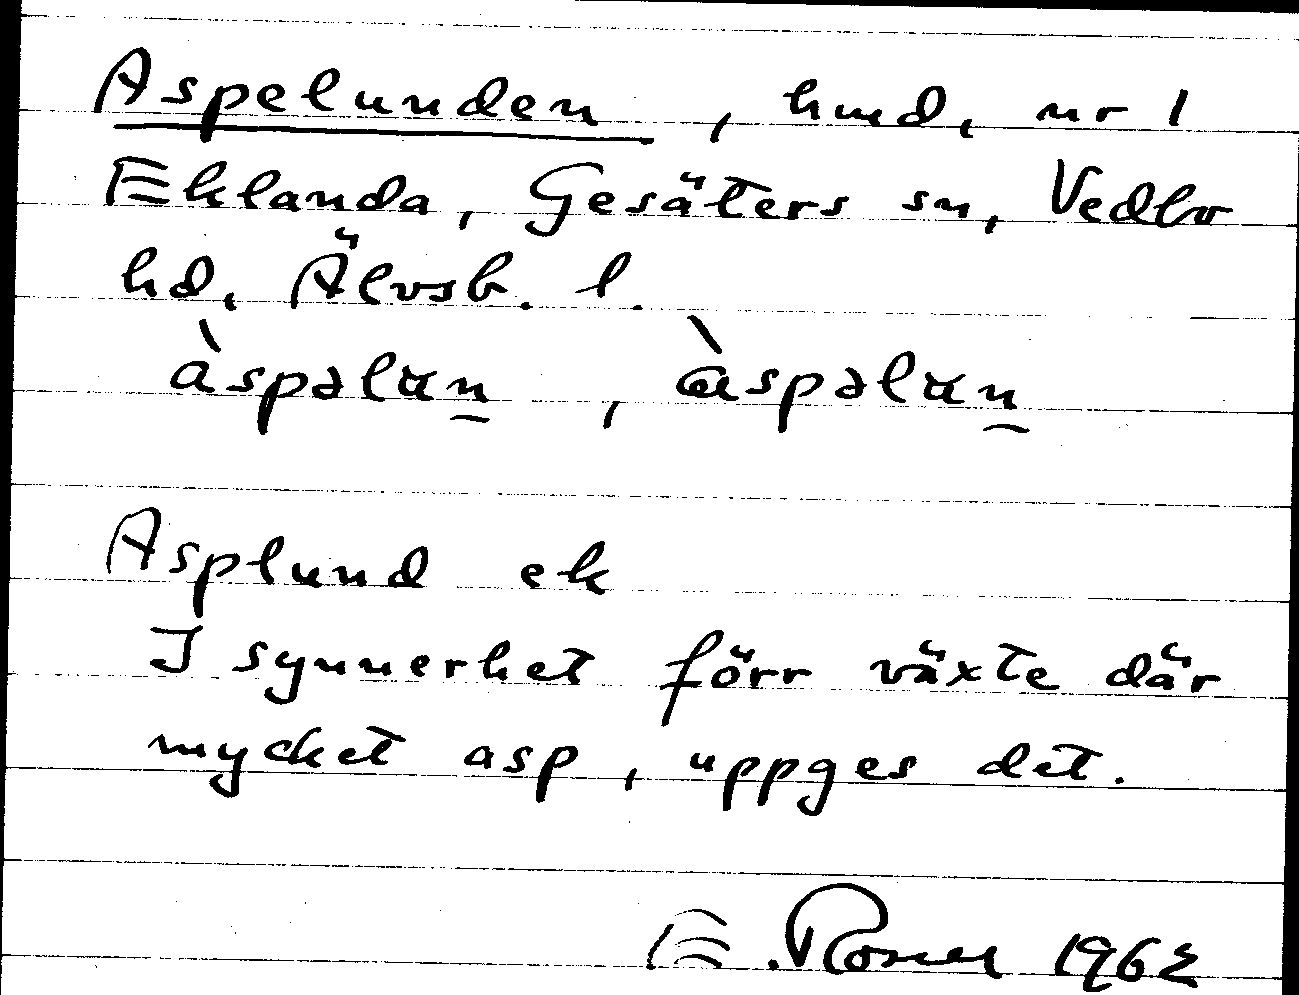 Aspelunden, hmd, nr 1
Eklanda, Gesäters sn, Vedbo
hd, Älvsb. l.
àspəlun̠, àspəlun̠
Asplund ek
I synnerhet förr växte där
mycket asp, uppges det.
E. Rosell 1962